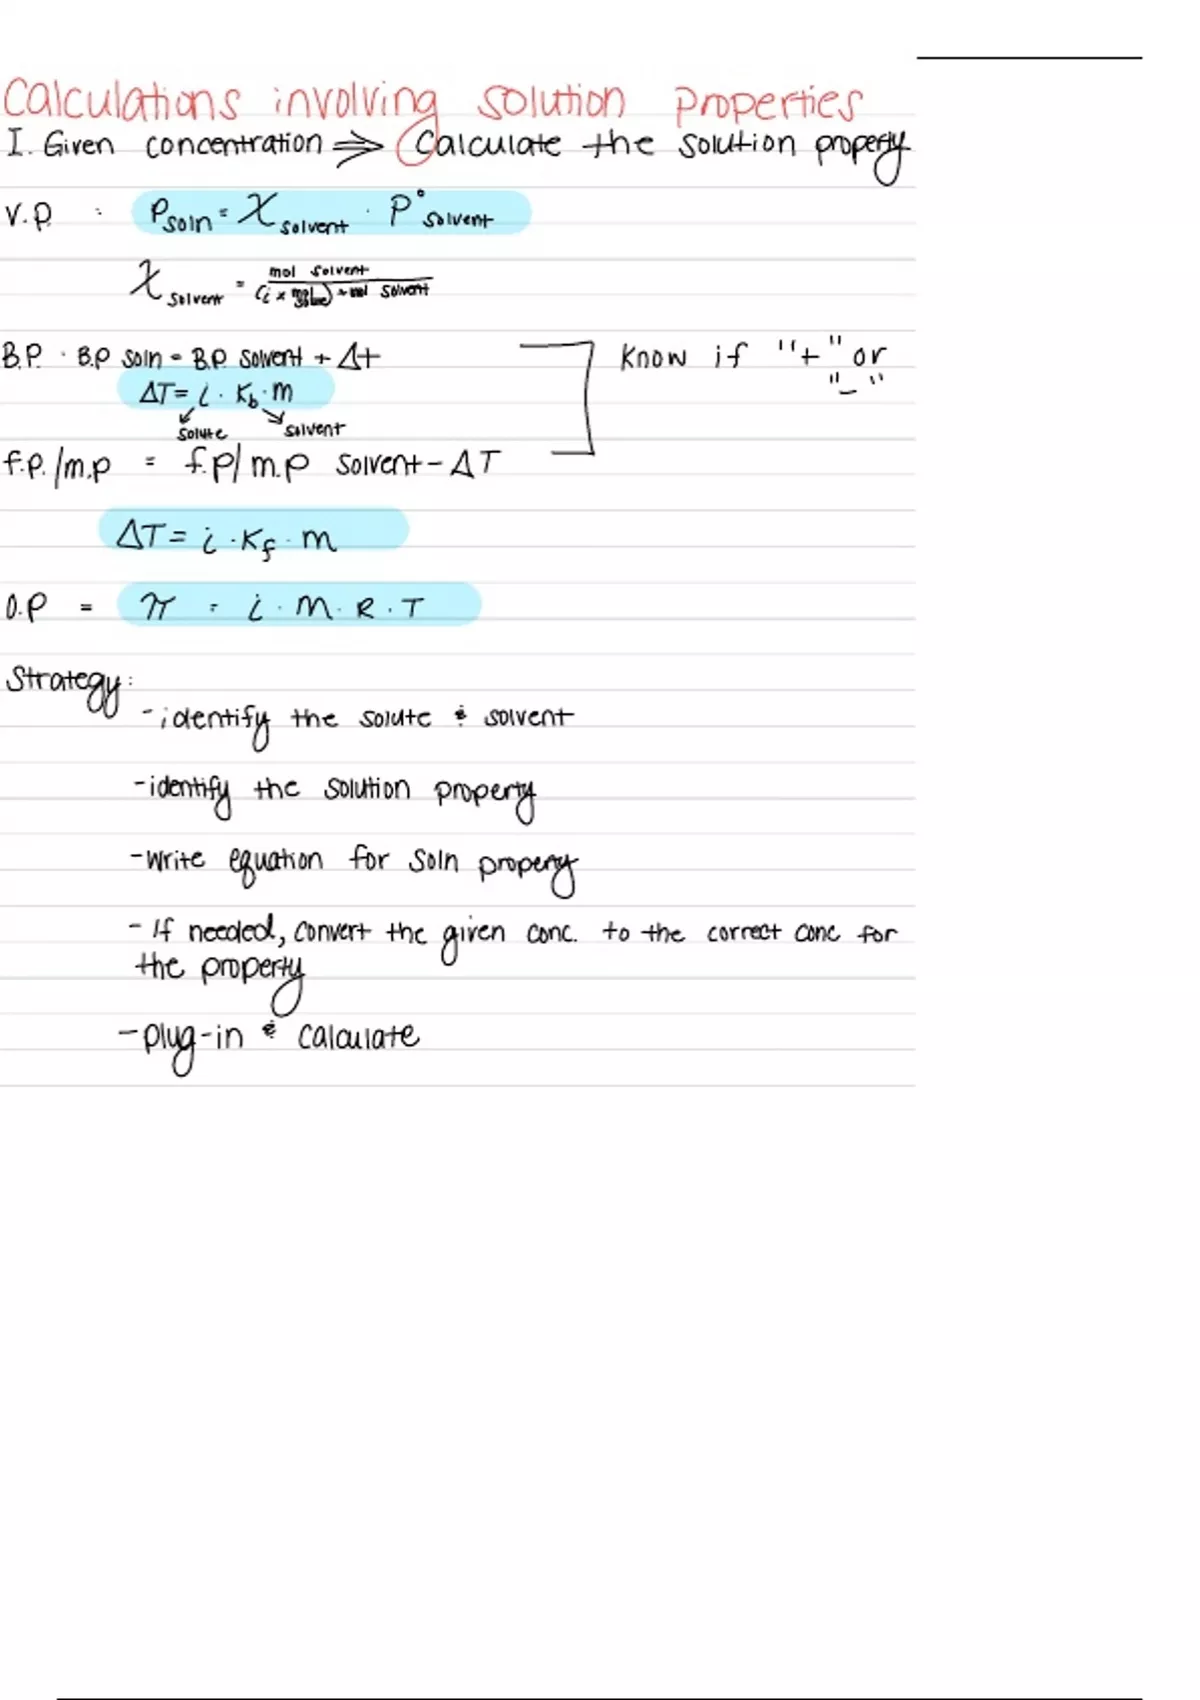 Calculations involving solution properties
I. Given concentration ⇒ Calculate the solution property
V.P. : Psoln = Xsolvent · P°solvent
Xsolvent = mol solvent
(i × mol solute) + mol solvent
B.P. · B.P soln = B.P. solvent + Δt
Know if "+" or
"-"
ΔT = i · Kb · m
solute solvent
f.p. /m.p = f.p/ m.p solvent - ΔT
ΔT = i · Kf · m
O.P = π = i · M · R · T
Strategy:
- identify the solute & solvent
- identify the solution property
- Write equation for soln property
- If needed, convert the given conc. to the correct conc for
the property
- plug-in & calculate